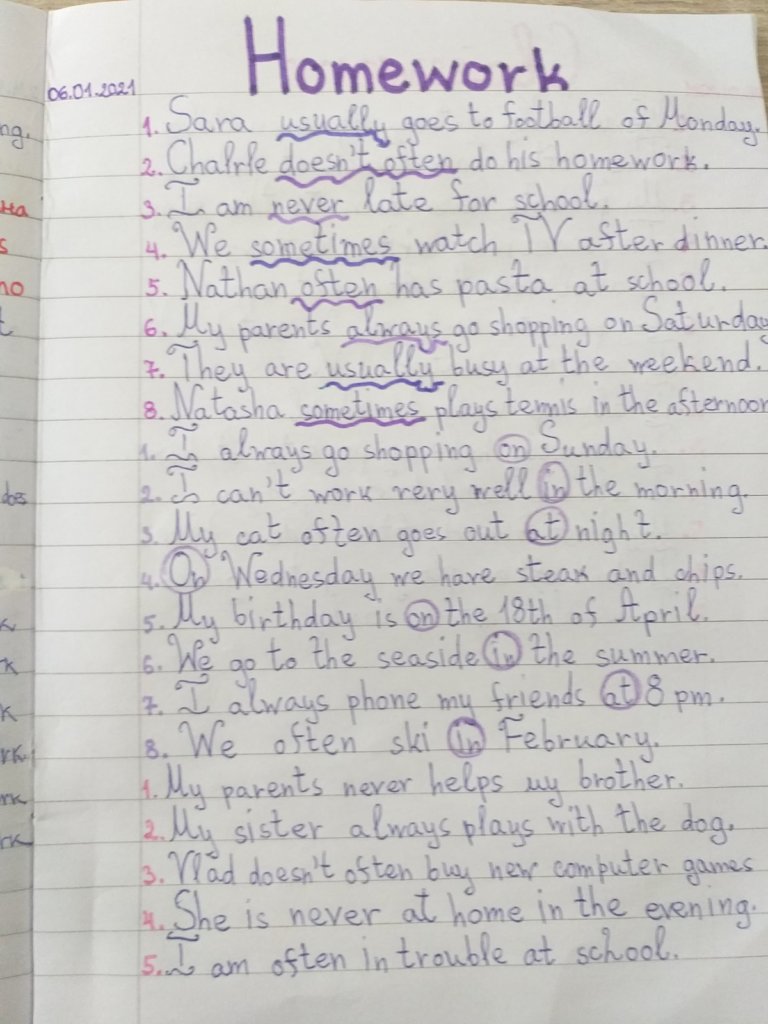 Homework
06.01.2021
1. Sara usually goes to football of Monday.
2. Chalrle doesn't often do his homework.
3. I am never late for school.
4. We sometimes watch TV after dinner.
5. Nathan often has pasta at school.
6. My parents always go shopping on Saturday
7. They are usually busy at the weekend.
8. Natasha sometimes plays tennis in the afternoon
1. I always go shopping on Sunday.
2. I can't work very well in the morning.
3. My cat often goes out at night.
4. On Wednesday we have steak and chips.
5. My birthday is on the 18th of April.
6. We go to the seaside in the summer.
7. I always phone my friends at 8 pm.
8. We often ski in February.
1. My parents never helps my brother.
2. My sister always plays with the dog.
3. Vlad doesn't often buy new computer games
4. She is never at home in the evening.
5. I am often in trouble at school.